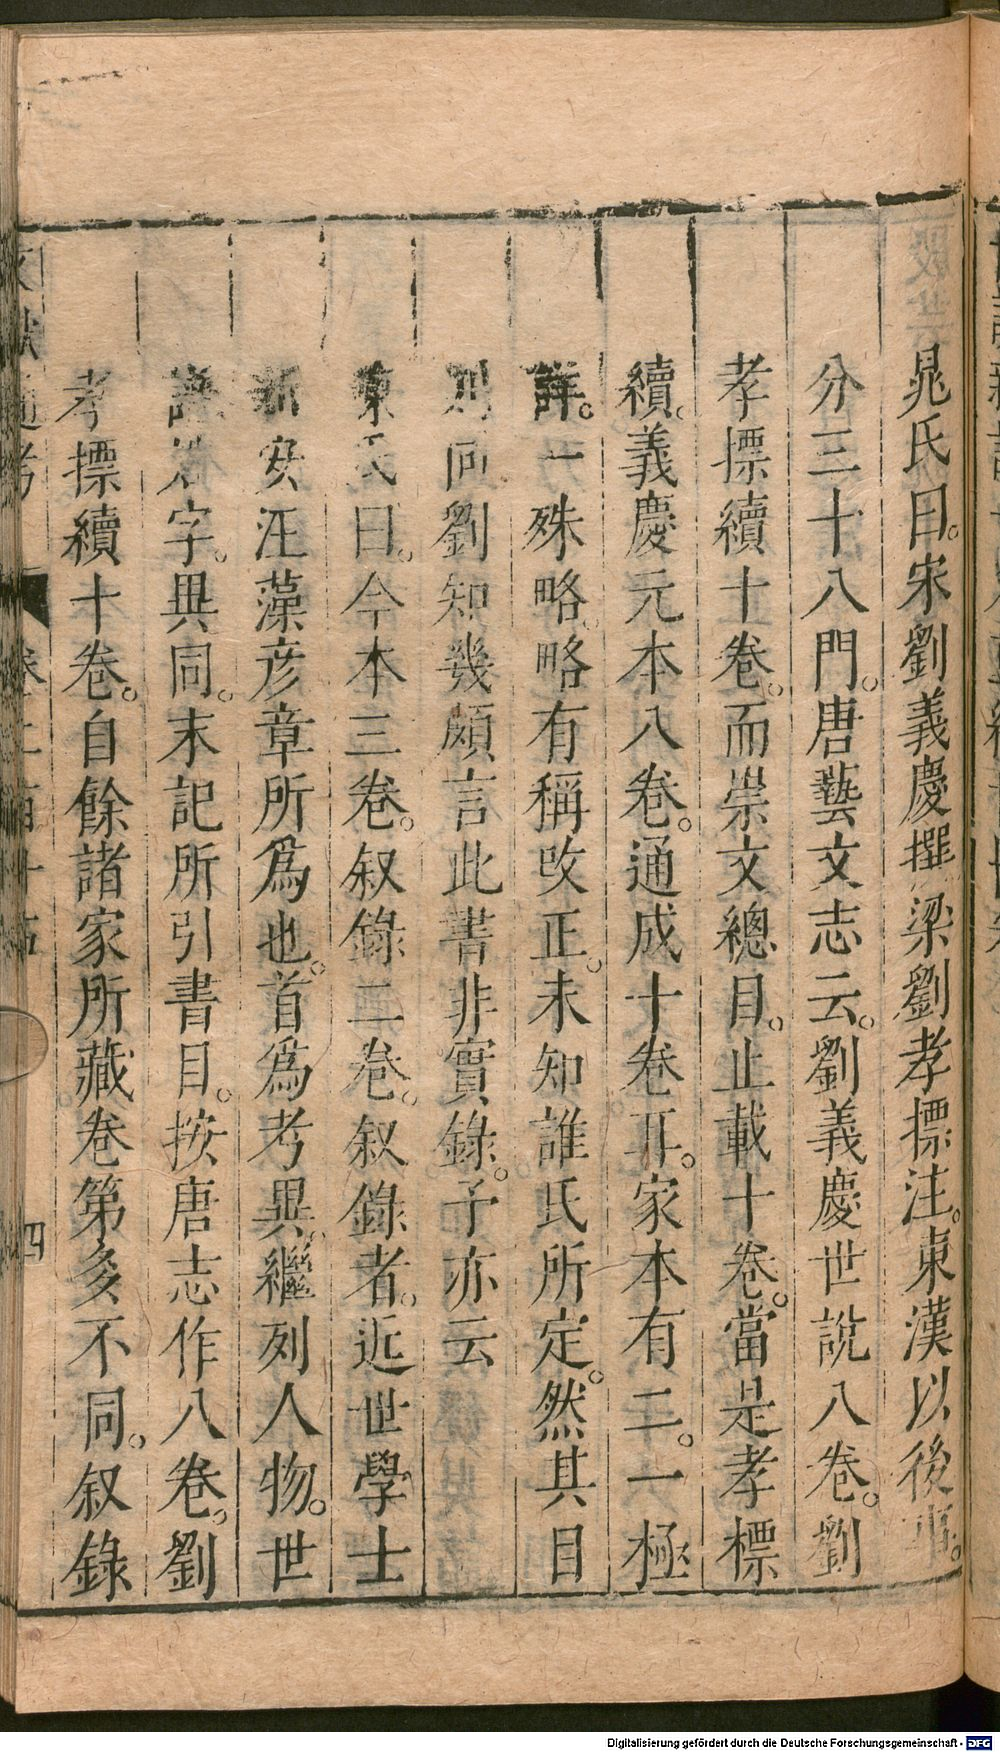 晁氏曰。宋劉義慶撰梁劉孝標注。東漢以後事。
分三十八門。唐藝文志云。劉義慶世說八卷。劉
孝標續十卷。而崇文總目。止載十卷。當是孝標
續。義慶元本八卷。通成十卷耳。家本有二。一極
詳。一殊略。略有稱改正。未知誰氏所定。然其目
則同劉知幾頗言此書非實錄。予亦云
陳氏曰。今本三卷。叙錄二卷。叙錄者。近世學士
新安汪藻彥章所爲也。首爲考異。繼列人物。世
譜 字。異同。末記所引書目。按唐志作八卷。劉
考標續十卷。自餘諸家所藏卷第多不同。叙錄
四
Digitalisierung gefördert durch die Deutsche Forschungsgemeinschaft - DFG